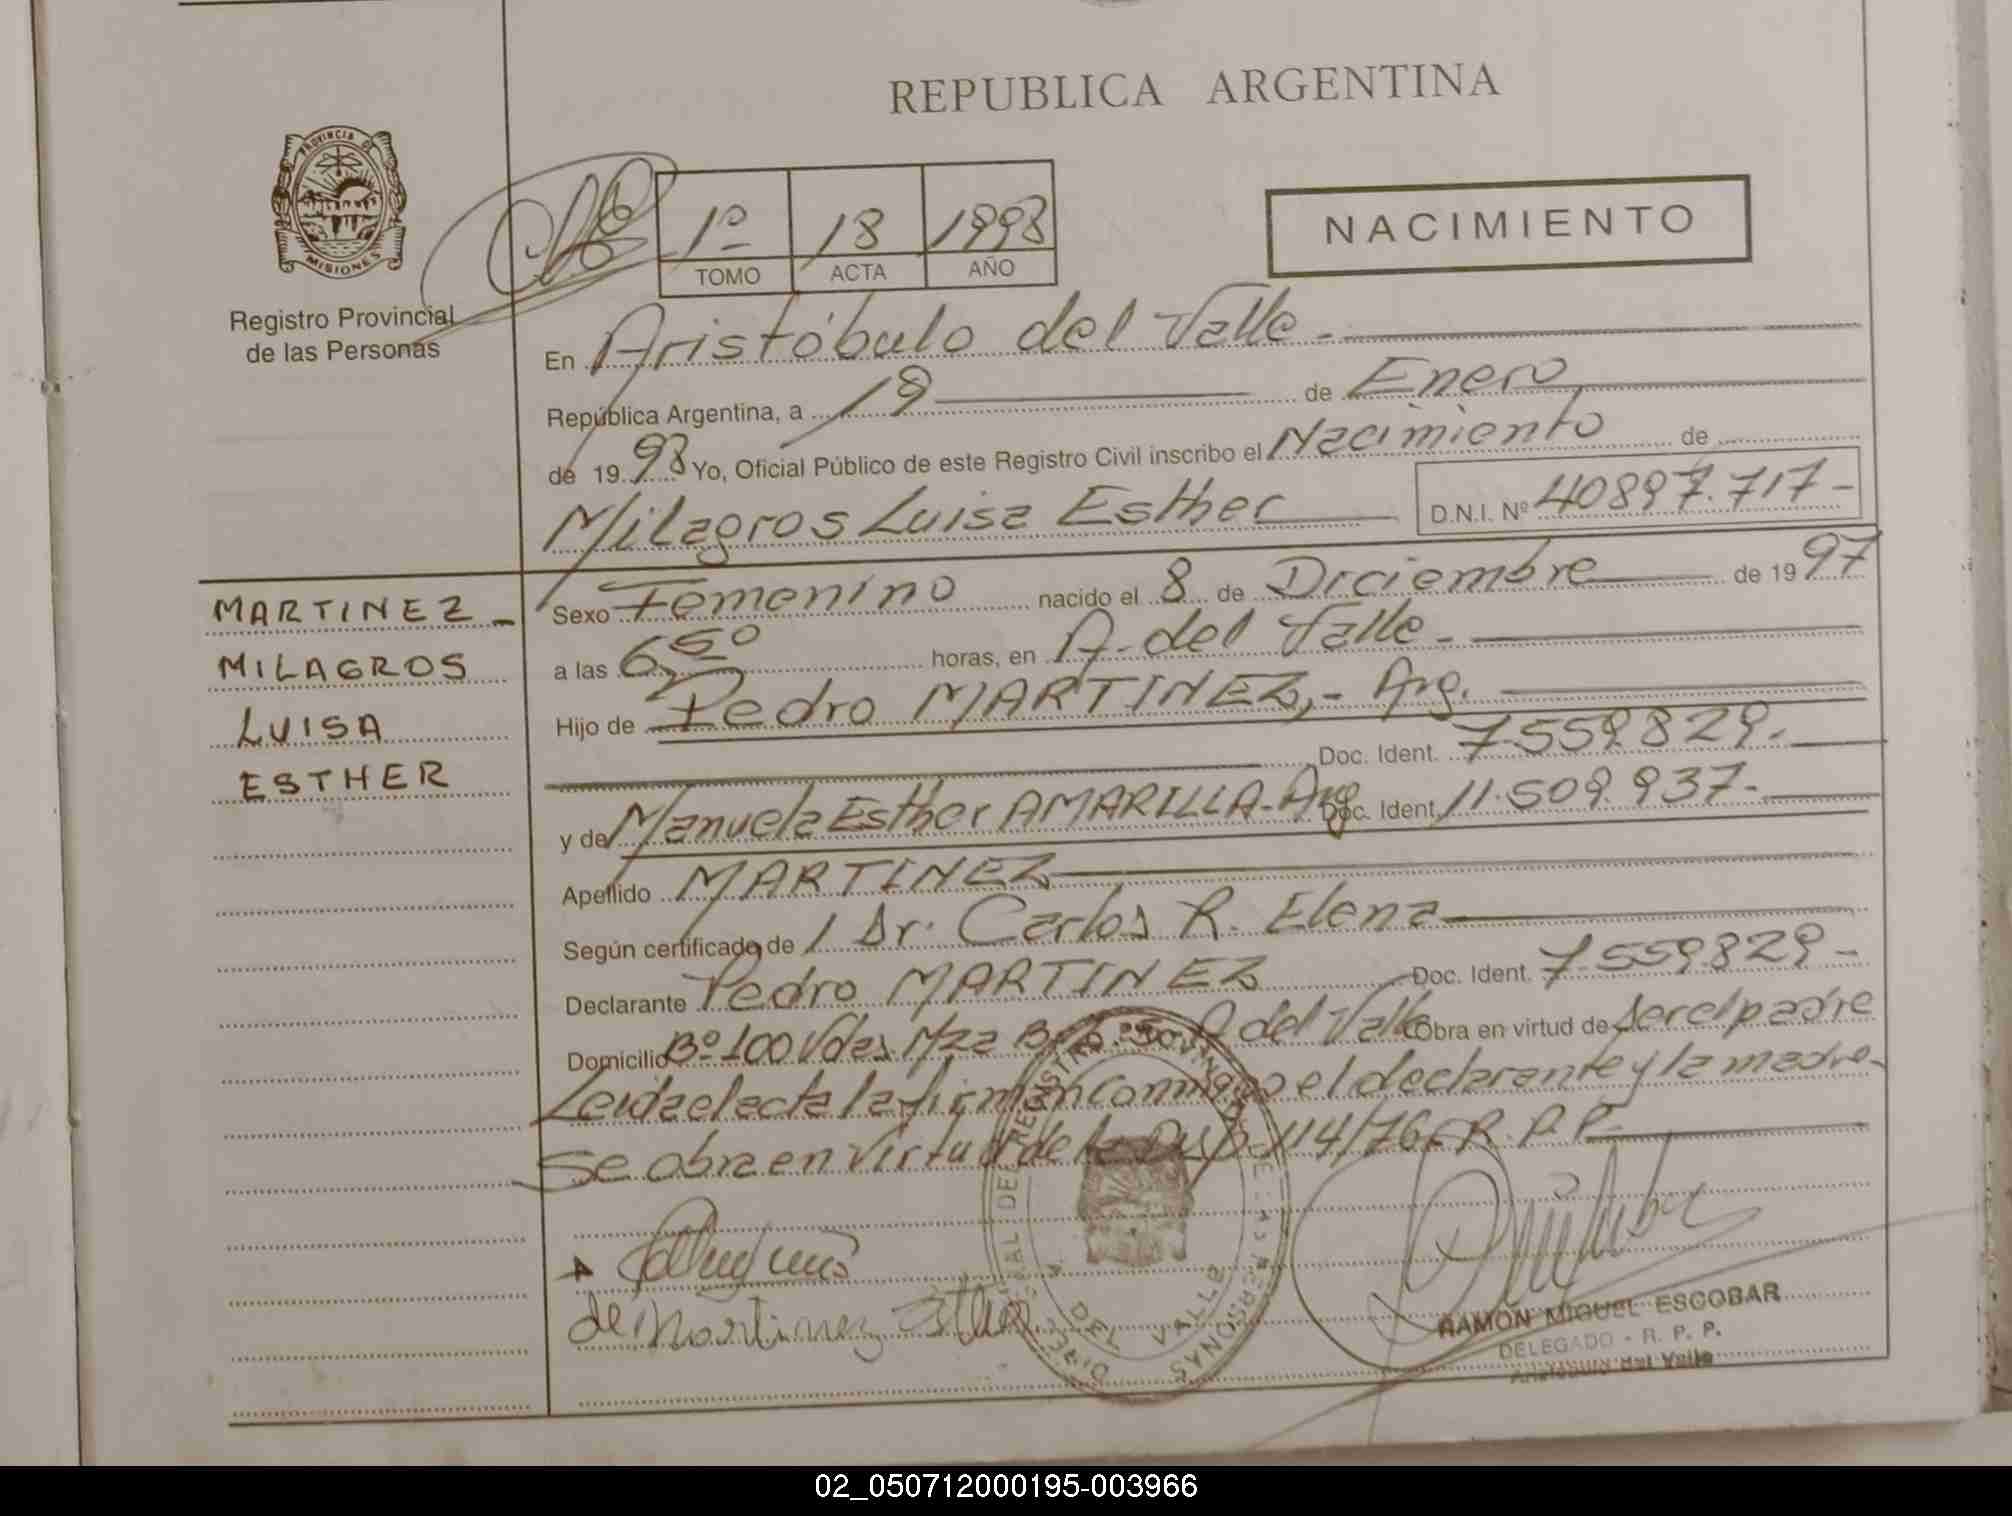 REPUBLICA ARGENTINA
PROVINCIA DE
MISIONES
Registro Provincial
de las Personas
1º 18 1998
TOMO ACTA AÑO
NACIMIENTO
En Aristóbulo del Valle -
República Argentina, a 19 de Enero
de 1998 Yo, Oficial Público de este Registro Civil inscribo el Nacimiento de
Milagros Luisa Esther D.N.I. Nº 40897.717-
MARTINEZ -
MILAGROS
LUISA
ESTHER
Sexo Femenino nacido el 8 de Diciembre de 1997
a las 6,50 horas, en A. del Valle -
Hijo de Pedro MARTINEZ,- Arg.
Doc. Ident. 7559829.
y de Manuela Esther AMARILLA-Arg Doc. Ident. 11.509.937-
Apellido MARTINEZ
Según certificado de Dr. Carlos R. Elena
Declarante Pedro MARTINEZ Doc. Ident. 7559829-
Domicilio Bº 100 Vdas Mza B A del Valle Obra en virtud de ser el padre
Leida el acta la firman conmigo el declarante y la madre-
Se obra en virtud de la Disp. 114/76-R.P.P.
de Martinez Esther
DEL VALLE
RAMON MIGUEL ESCOBAR
DELEGADO - R. P. P.
Aristóbulo del Valle
02_050712000195-003966